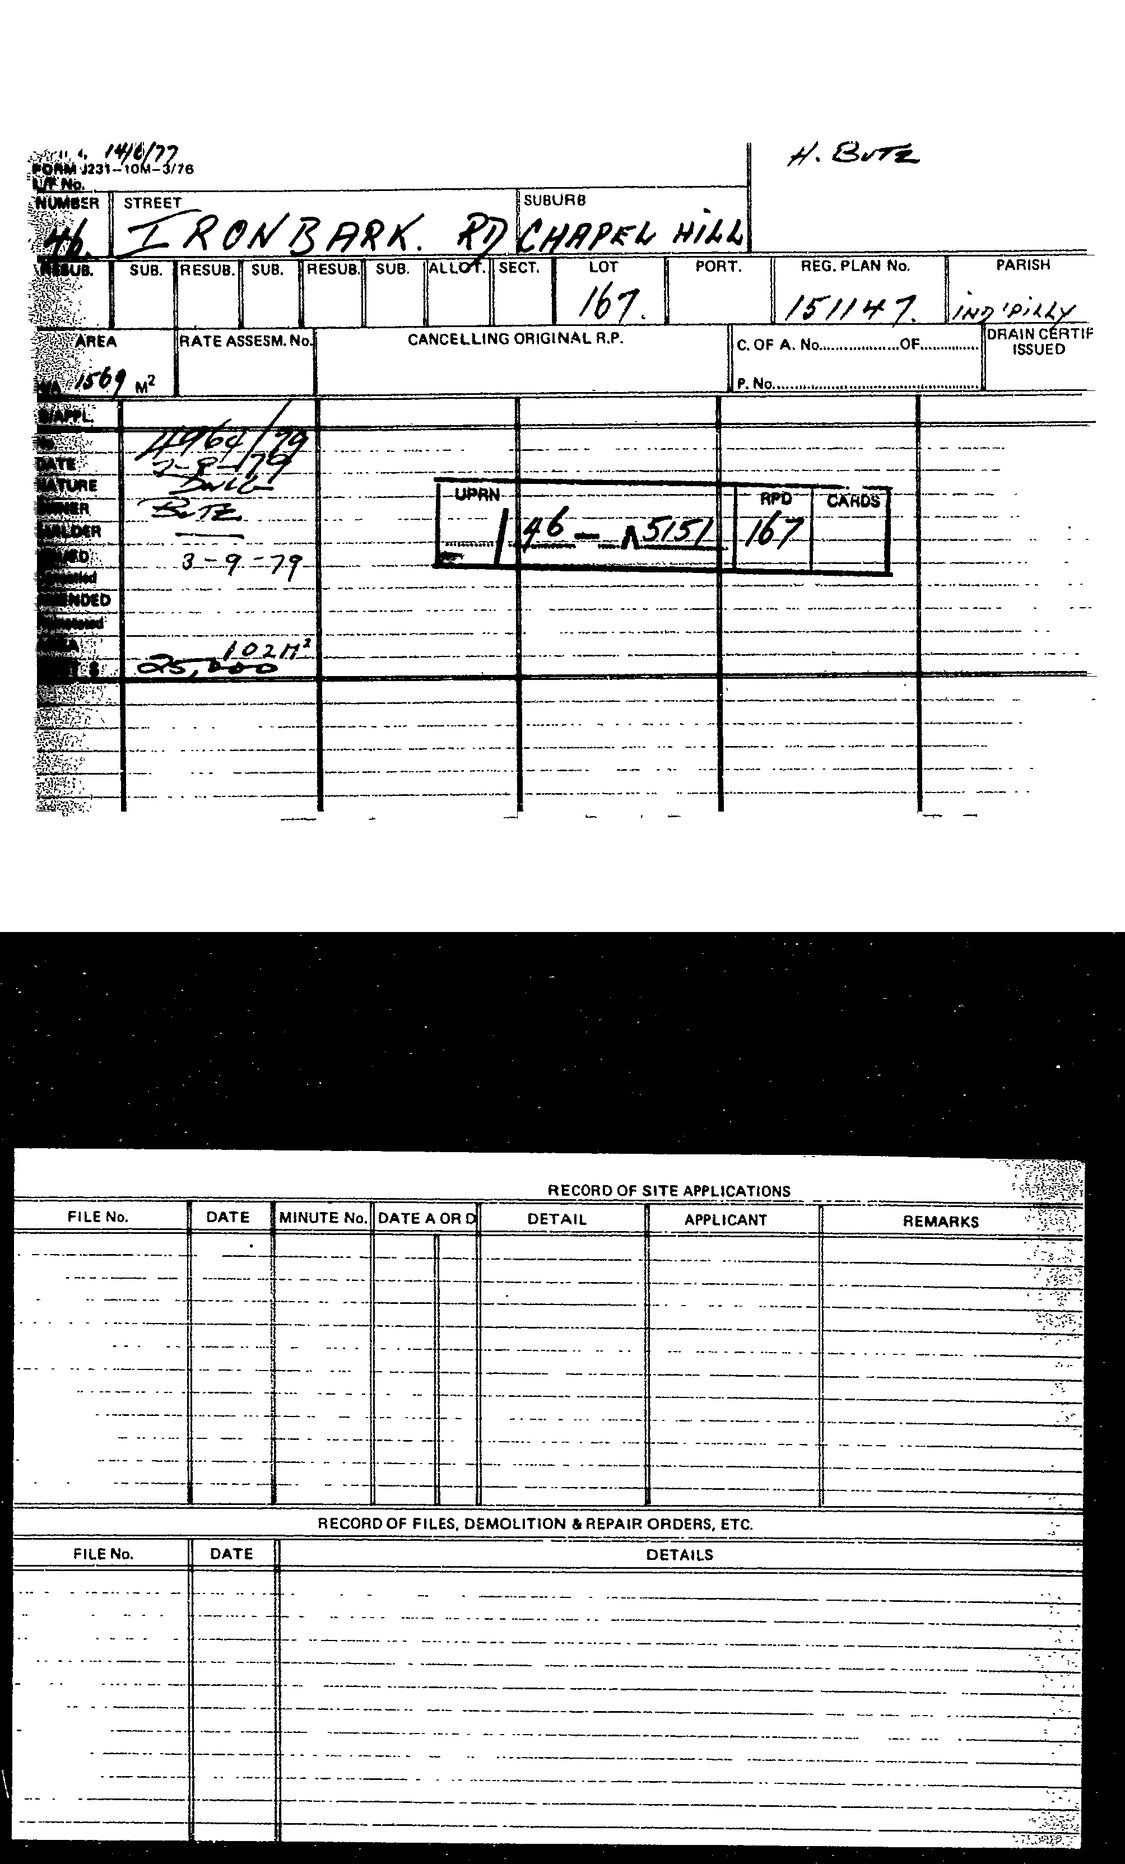 14/6/77
H. BUTZ
FORM J231-10M-3/76
L/F No.
NUMBER STREET SUBURB
46. IRONBARK. RD CHAPEL HILL
RESUB. SUB. RESUB. SUB. RESUB. SUB. ALLOT. SECT. LOT PORT. REG. PLAN No. PARISH
167. 151147. IND'PILLY
AREA RATE ASSESM. No. CANCELLING ORIGINAL R.P. C. OF A. No. OF DRAIN CERTIF
ISSUED
1569 M² P. No.
B/APPL.
No 4964/79
DATE 3-8-79
NATURE DWLG
OWNER BUTZ
BUILDER
UPRN RPD CARDS
/ 46 - Λ5151 167
3-9-79
AMENDED
102 M²
25,000
RECORD OF SITE APPLICATIONS
FILE No. DATE MINUTE No. DATE A OR D DETAIL APPLICANT REMARKS
RECORD OF FILES, DEMOLITION & REPAIR ORDERS, ETC.
FILE No. DATE DETAILS